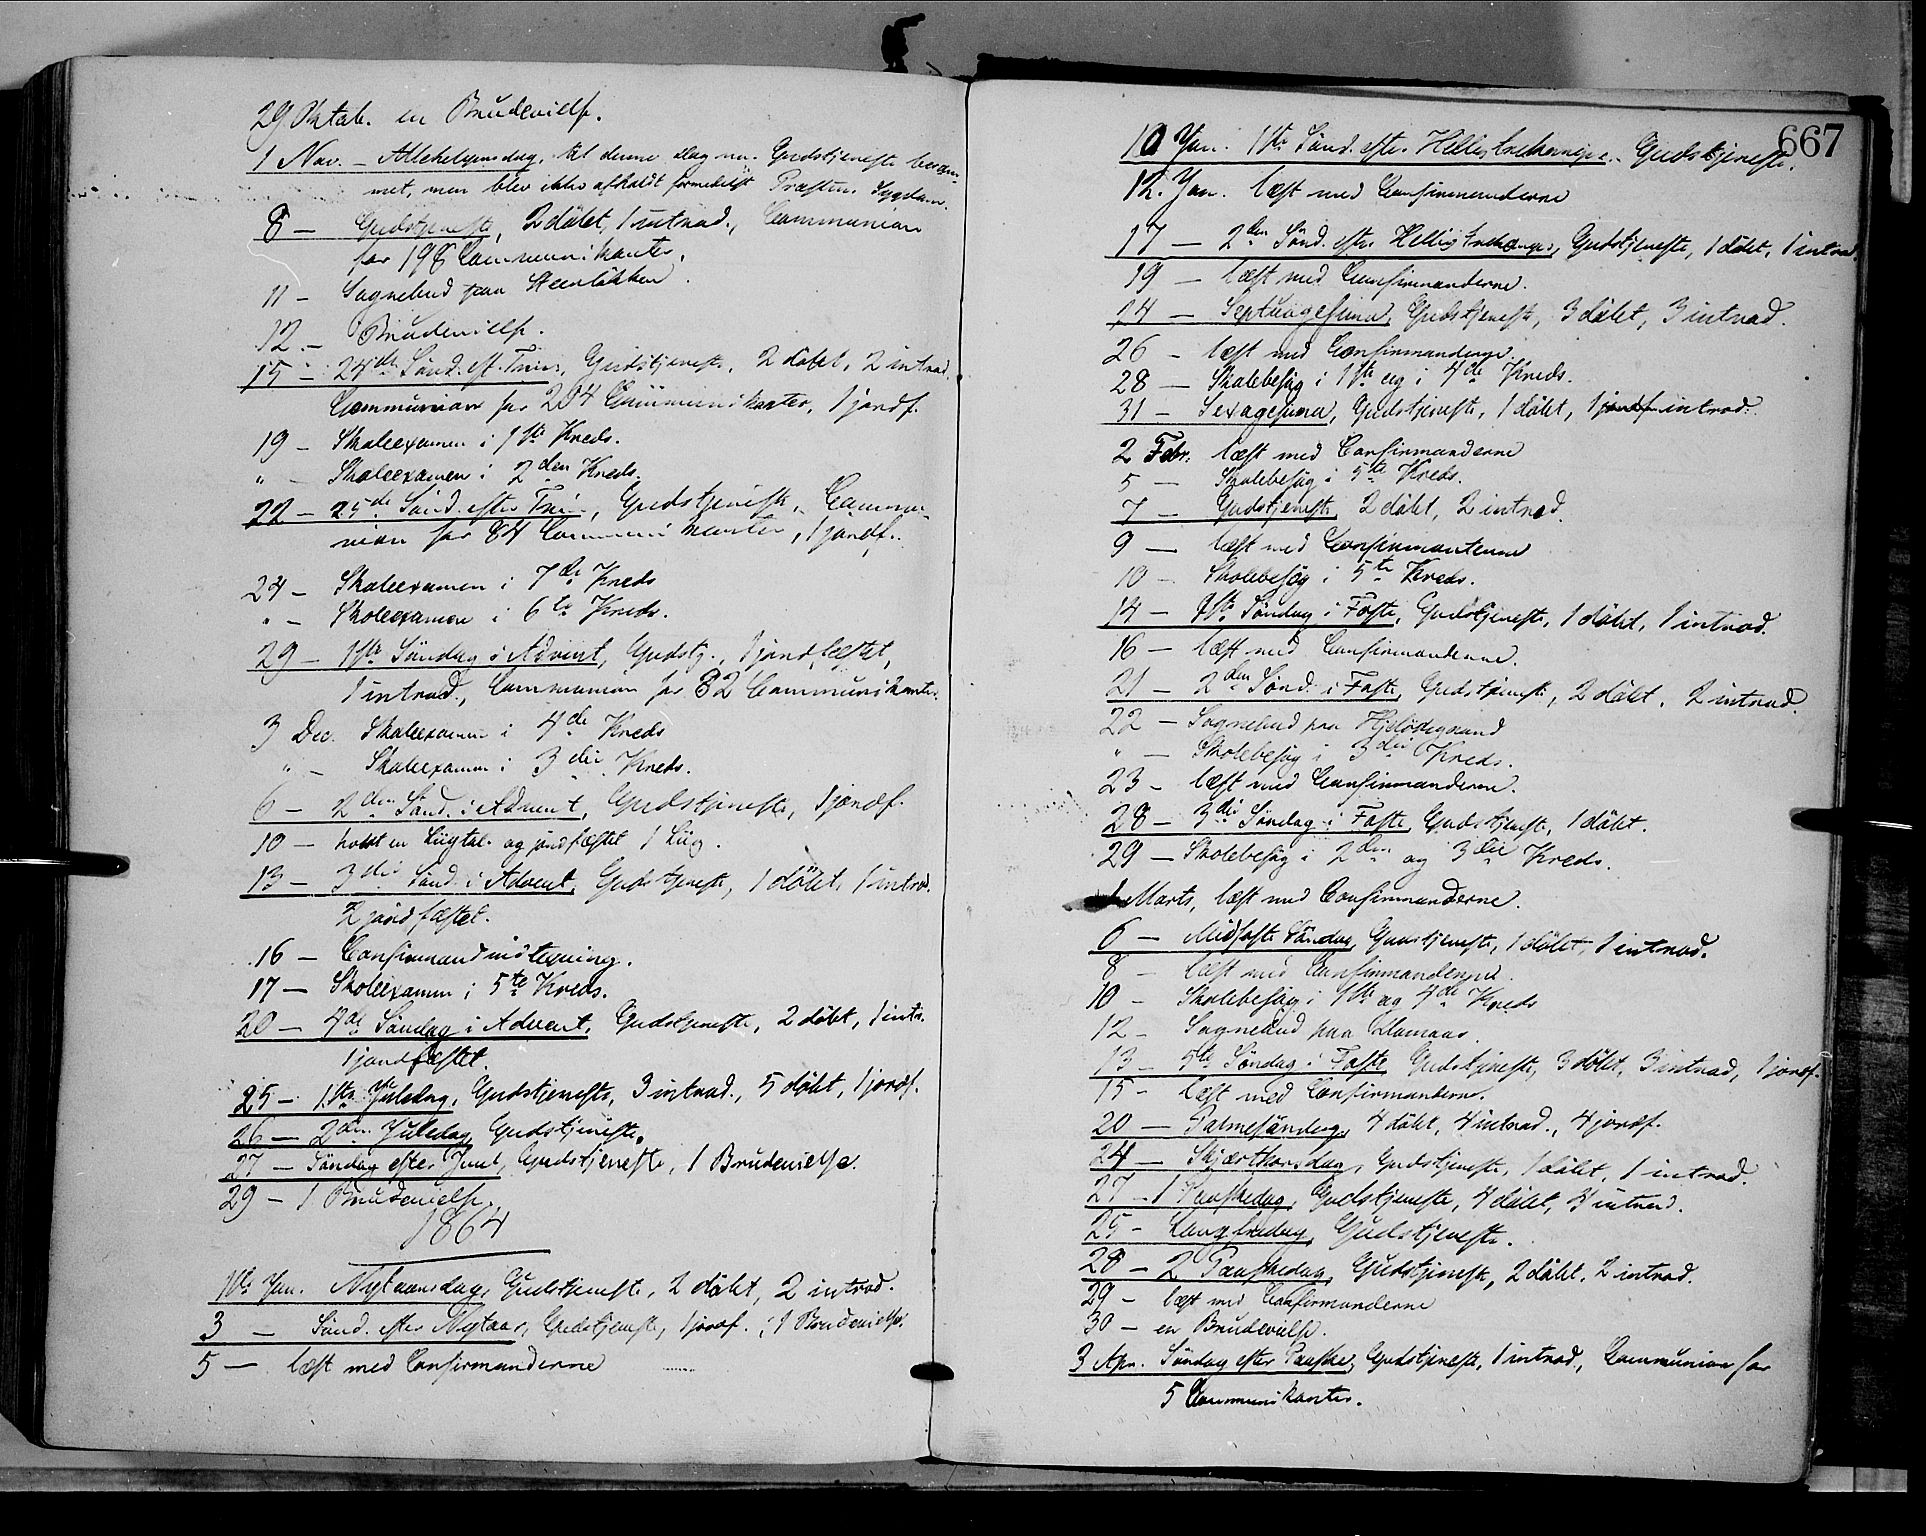 29 Oktob. en Brudevielse.
1 Nov. – Allehelgensdag, til denne Dag var Gudstjeneste berammet, men blev ikke afholdt formedelst Præstens Sygdom.
8 – Gudstjeneste, 2 döbt, 1 introd., Communion
for 198 Communikanter.
11 – Sognebud paa Steenlökken.
12 – Brudevielse.
15 – 24de Sönd. eft. Trin., Gudstjeneste, 2 döbt, 2 introd.
Communion for 204 Communikanter, 1 jordf.
19 – Skoleexamen i 1ste Kreds.
" – Skoleexamen i 2den Kreds.
22 – 25de Sönd. efter Trin., Gudstjeneste, Commu-
nion for 84 Communikanter, 1 jordf.
24 – Skoleexamen i 7de Kreds
" – Skoleexamen i 6te Kreds.
29 – 1ste Söndag i Advent, Gudstj., 1 jordfæstet,
1 introd., Communion for 82 Communikanter.
3 Dec. Skoleexamen i 4de Kreds
" – Skoleexamen i 3die Kreds.
6 – 2den Sönd. i Advent, Gudstjeneste, 1 jordf.
10 – holdt en Liigtale og jordfæstet 1 Liig.
13 – 3die Sönd. i Advent, Gudstjeneste, 1 döbt, 1 introd.
2 jordfæstet.
16 – Confirmandindtegning.
17 – Skoleexamen i 5te Kreds.
20 – 4de Söndag i Advent, Gudstjeneste, 2 döbt, 1 intr.
1 jordfæstet.
25 – 1ste Juledag, Gudstjeneste, 3 introd., 5 döbt, 1 jordf.
26 – 2den Juledag, Gudstjeneste.
27 – Söndag efter Juul, Gudstjeneste, 1 Brudevielse.
29 – 1 Brudevielse.
1864
1ste Jan. Nytaarsdag, Gudstjeneste, 2 döbt, 2 introd.
3 – Sönd. efter Nytaar, Gudstjeneste, 1 jordf., 1 Brudevielse.
5 – læst med Confirmanderne
667
10 Jan. 1ste Sönd. efter Hellig trekonger, Gudstjeneste.
12. Jan. læst med Confirmanderne
17 – 2den Sönd. efter Hellig trekonger, Gudstjeneste, 1 döbt, 1 introd.
19 – læst med Confirmanderne.
24 – Septuagesima, Gudstjeneste, 3 döbt, 3 introd.
26 – læst med Confirmanderne.
28 – Skolebesög i 1ste og i 4de Kreds.
31 – Sexagesima, Gudstjeneste, 1 döbt, 1 jordf introd.
2 Febr. læst med Confirmanderne
5 – Skolebesög i 5te Kreds.
7 – Gudstjeneste, 2 döbt, 2 introd.
9 – læst med Confirmanterne
10 – Skolebesög i 5te Kreds.
14 – 1ste Söndag i Faste, Gudstjeneste, 1 döbt, 1 introd.
16 – læst med Confirmanderne.
21 – 2den Sönd. i Faste, Gudstjeneste, 2 döbt, 2 introd.
22 – Sognebud paa
" – Skolebesög i 3die Kreds.
23 – læst med Confirmanderne.
28 – 3die Söndag i Faste, Gudstjeneste, 1 döbt.
29 – Skolebesög i 2den og 3die Kreds.
1 Marts, læst med Confirmanderne.
6 – Midfaste Söndag, Gudstjeneste, 1 döbt, 1 introd.
8 – læst med Confirmanderne.
10 – Skolebesög i 1ste og 4de Kreds
12 – Sognebud paa
13 – 5te Söndag i Faste, Gudstjeneste, 3 döbt, 3 introd, 1 jordf.
15 – læst med Confirmanderne.
20 – Palmesöndag, 4 döbt, 4 introd., 4 jordf.
24 – Skjærthorsdag, Gudstjeneste, 1 döbt, 1 introd.
27 – 1 Paaskedag, Gudstjeneste, 4 döbt, 4 introd.
25 – Langfredag, Gudstjeneste.
28 – 2 Paaskedag, Gudstjeneste, 2 döbt, 2 introd.
29 – læst med Confirmanderne
30 – en Brudevielse.
3 Apr. Söndag efter Paaske, Gudstjeneste, 1 introd., Communion for
5 Communikanter.